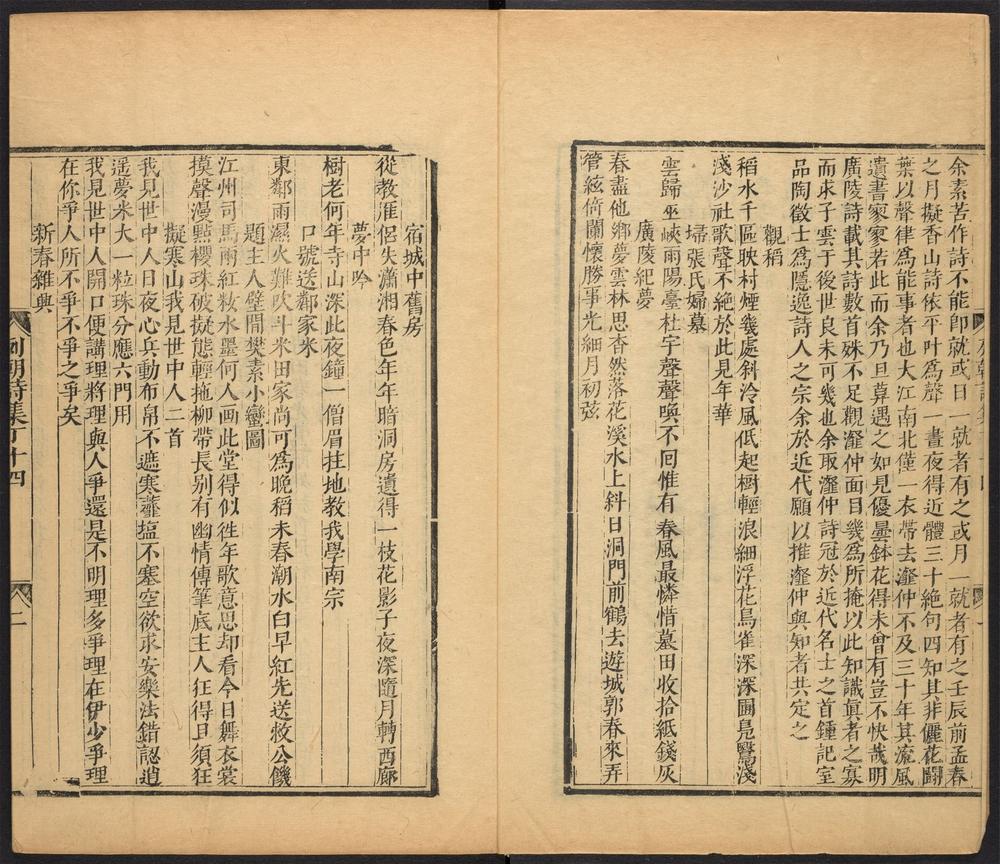 余素苦作詩不能即就或日一就者有之或月一就者有之壬辰前孟春
之月擬香山詩依平叶爲聲一晝夜得近體三十絶句四知其非儷花鬪
葉以聲律爲能事者也大江南北僅一衣帶去瀣仲不及三十年其流風
遺書寥寥若此而余乃旦算遇之如見優曇鉢花得未曾有豈不快哉明
廣陵詩載其詩數首殊不足觀瀣仲面目幾爲所掩以此知識眞者之寡
而求子雲于後世良未可幾也余取瀣仲詩冠於近代名士之首鍾記室
品陶徵士爲隱逸詩人之宗余於近代願以推瀣仲與知者共定之
觀稻
稻水千區映村煙幾處斜冷風低起樹輕浪細浮花鳥雀深深圃鳧鷖淺
淺沙社歌聲不絶於此見年華
婦張氏婦墓
雲歸巫峽雨陽臺杜宇聲聲喚不回惟有春風最憐惜墓田收拾紙錢灰
廣陵紀夢
春盡他鄉夢雲林思杳然落花溪水上斜日洞門前鶴去遊城郭春來弄
管絃倚闌懷勝事光細月初弦
宿城中舊房
從教淮侶失瀟湘春色年年暗洞房遺得一枝花影子夜深隨月轉西廊
夢中吟
樹老何年寺山深此夜鐘一僧眉拄地教我學南宗
口號送鄰家米
東鄰雨濕火難吹斗米田家尚可爲晚稻未舂潮水白早紅先送救公饑
題主人壁間樊素小蠻圖
江州司馬兩紅粧水墨何人画此堂得似徃年歌意思却看今日舞衣裳
摸聲漫點櫻珠破擬態輕拖柳帶長别有幽情傳筆底主人狂得且須狂
擬寒山我見世中人二首
我見世中人日夜心兵動布帛不遮寒虀塩不塞空欲求安樂法錯認逍
遥夢米大一粒珠分應六門用
我見世中人開口便講理將理與人爭還是不明理多爭理在伊少爭理
在你爭人所不爭不爭之爭矣
新春雜興
列朝詩集丁十四
二